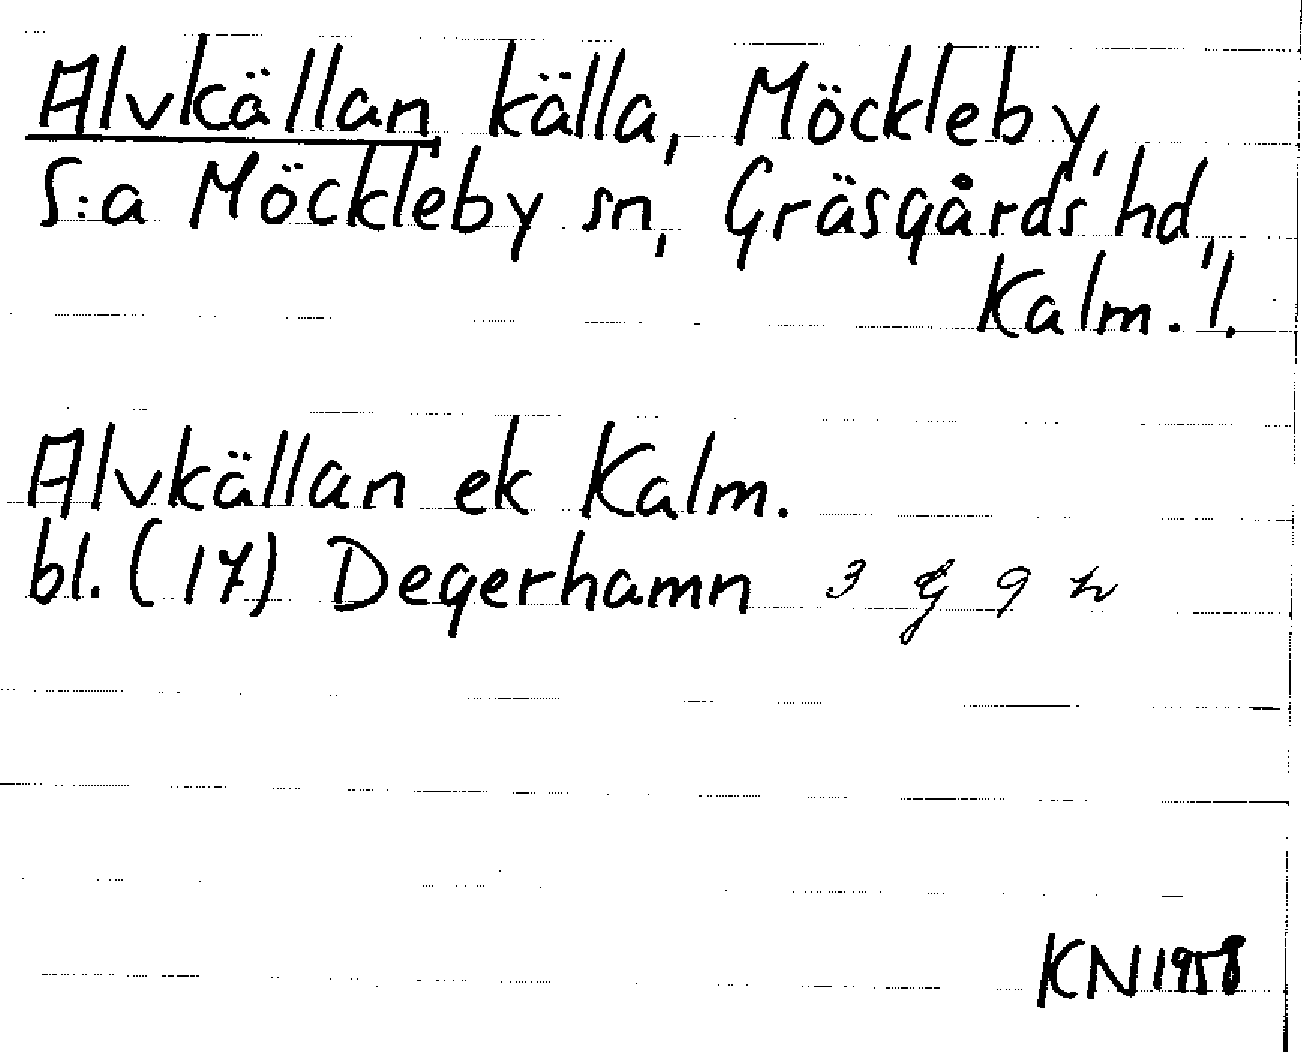 Alvkällan, källa, Möckleby,
S:a Möckleby sn, Gräsgårds hd,
Kalm. l.
Alvkällan ek Kalm.
bl. (17) Degerhamn 3 G 9 h
KN 1958